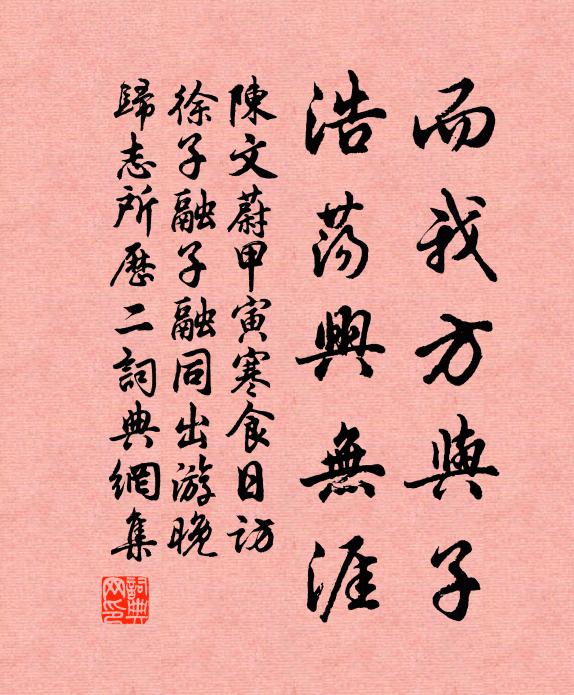 而我方與子
浩蕩興無涯
陳文蔚甲寅寒食日訪
徐子融子融同出游晚
歸志所歷二詞典網集
詞典網印